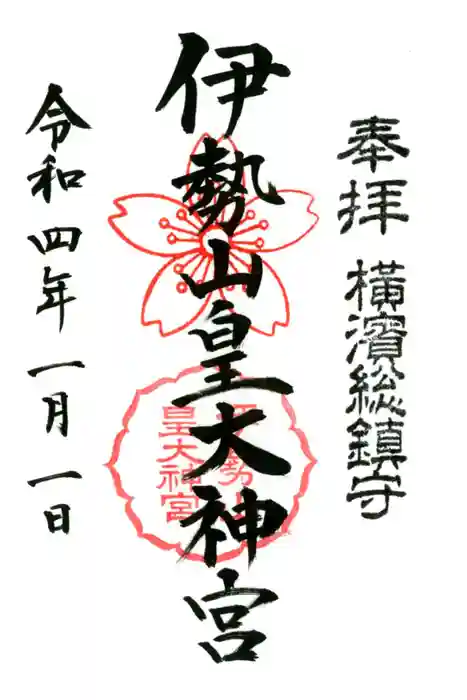 奉拝
横濱総鎮守
伊勢山皇大神宮
伊勢山
皇大神宮
令和四年一月一日